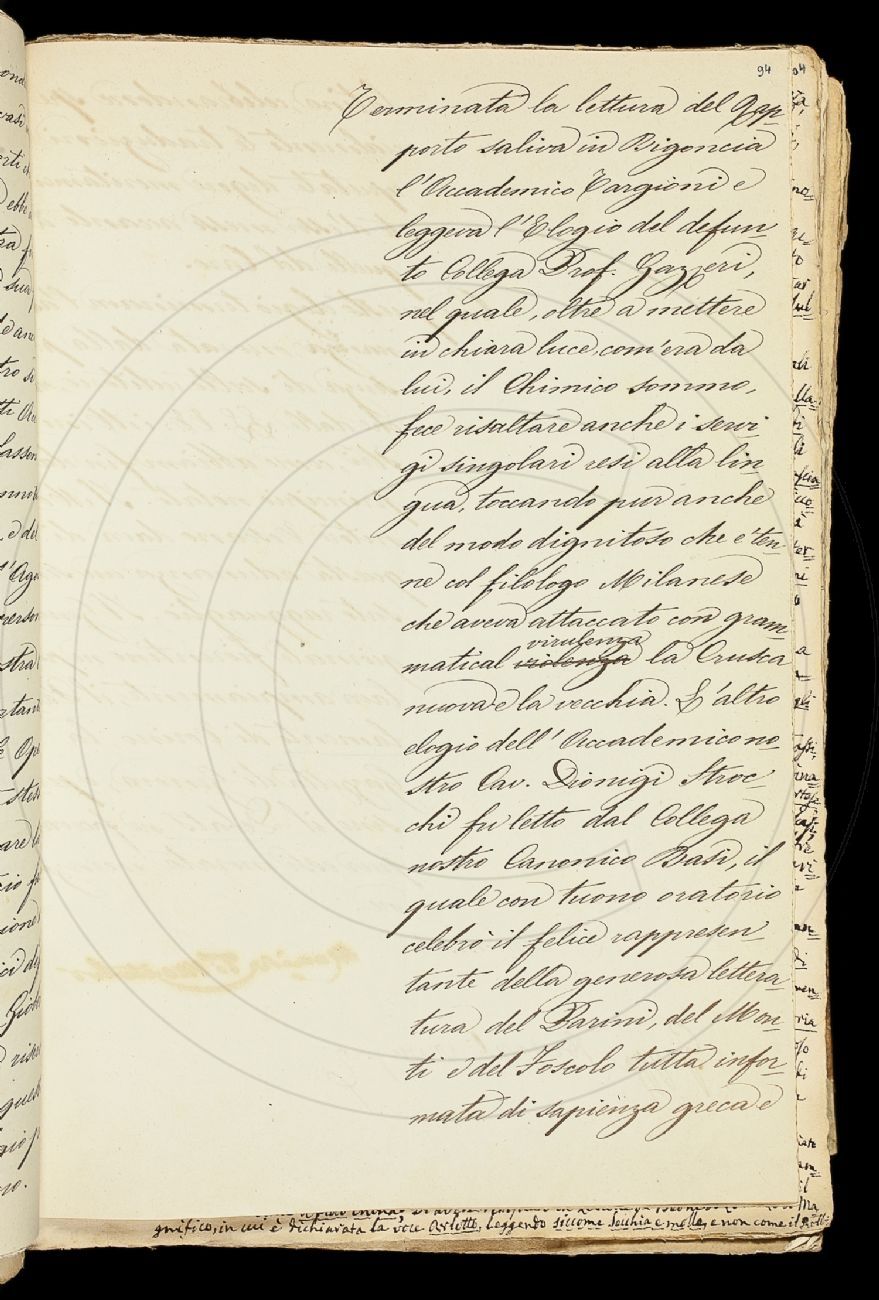 94
Terminata la lettura del Rap-
porto saliva in Bigoncia
l'Accademico Targioni e
leggeva l'Elogio del defun-
to Collega Prof. Gazzeri,
nel quale, oltre a mettere
in chiara luce, com'era da
lui, il Chimico sommo,
fece risaltare anche i servi-
gi singolari resi alla lin
gua, toccando pur anche
del modo dignitoso che e' ten-
ne col filologo Milanese
che aveva attaccato con gram-
virulenza
matical violenza la Crusca
nuova e la vecchia. L'altro
elogio dell' Accademico no-
stro Cav. Dionigi Stroc-
chi fu letto dal Collega
nostro Canonico Basi, il
quale con tuono oratorio
celebrò il felice rappresen-
tante della generosa lettera-
tura del Parini, del Mon-
ti e del Foscolo tutta infor-
mata di sapienza greca e
gnifico, in cui è dichiarata la voce Arlotto, leggendo siccome